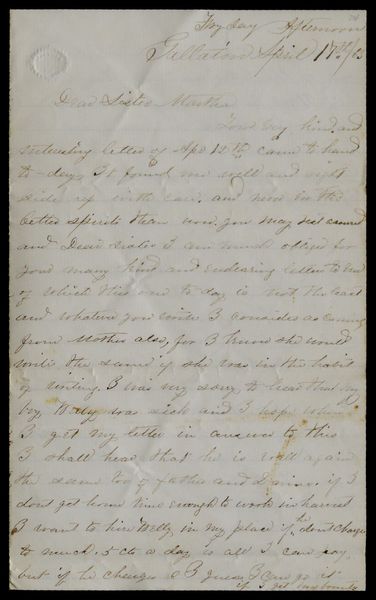 Afternoon
Gallatin April 17th /63
Dear Sister Martha
Your very kind and
interesting letter of Apr 12th came to hand
to-day, It found me well and right
side up with care. and now in the
better spirits than ever. you may rest assured
and Dear sister I am much obliged for
your many kind and endearing letters to me
of which this one to day is not the least
and whatever you write I consider as coming
from Mother also, for I know she would
write the same if she was in the habit
of writing. I was very sorry to hear that my
boy Willy was sick and I hope when
I get my letter in answer to this
I shall hear that he is well again
the same too of Father and if I
dont get home time enough to work in harvest
I want to hire Willy in my place if he dont charge
to much. 5 cts a day is all I can pay.
but if he charges I guess I can go it
if I get my bounty